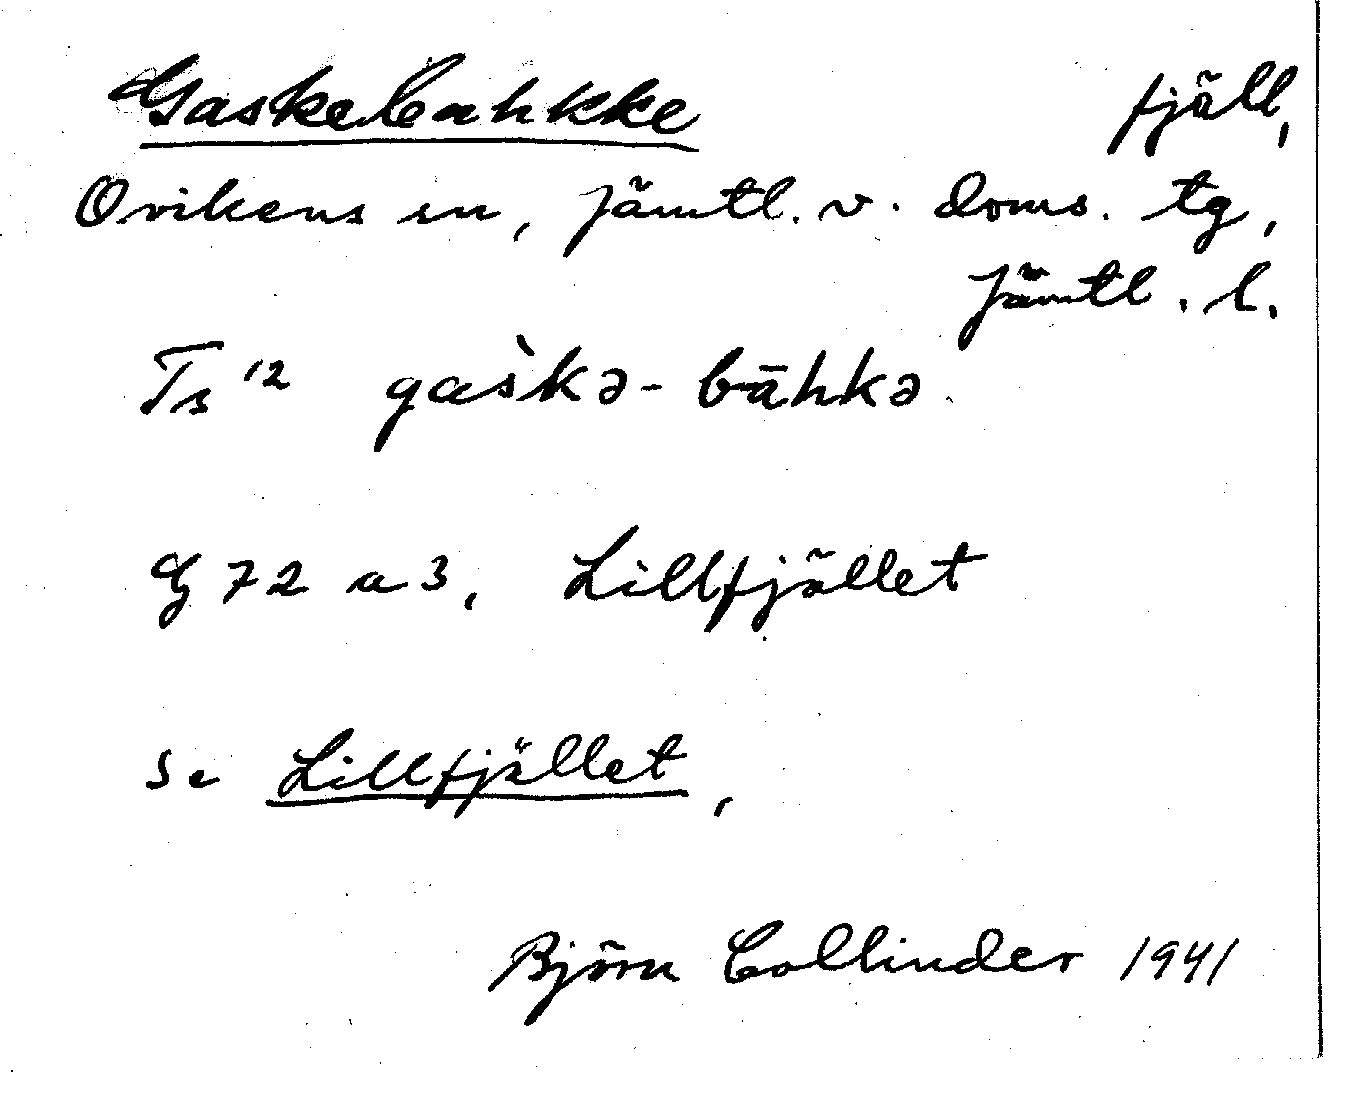 Gaskebahkke fjäll,
Ovikens sn, Jämtl. v. doms. tg,
Jämtl. l.
Ts 12 gaskə-bāhkə
G 72 a 3, Lillfjället
se Lillfjället,
Björn Collinder 1941